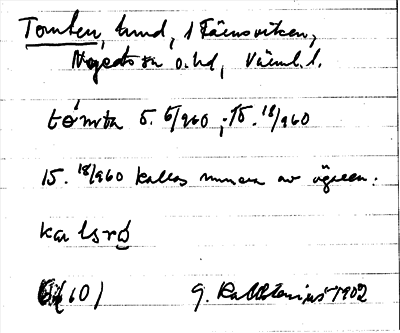 Tomten, lund, i Färnsviken,
Nyeds sn o. hd, Värml. l.
tómta 5. 6/960; 15. 18/960
15. 18/960 kallas numera av ägaren:
kalsró
(60) G. Kallstenius 1902